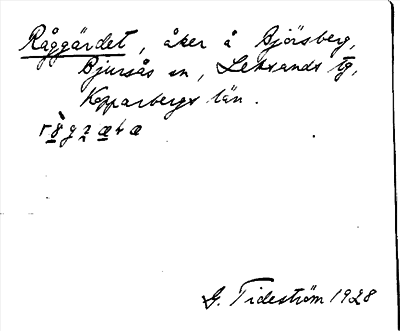 Råggärdet, åker å Björsberg,
Bjursås sn, Leksands tg,
Kopparbergs län.
G. Tideström 1928